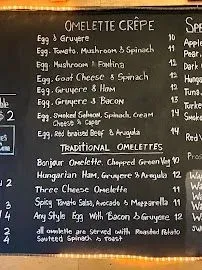 OMELETTE CRÊPE
Egg & Gruyere
Egg, Tomato, Mushroom & Spinach 11
Egg, Mushroom & Fontina 11
Egg, Goat Cheese & Spinach 11
Egg, Gruyere & Ham 12
Egg, Gruyere & Bacon 13
Egg, Smoked Salmon, Spinach, Cream 14
Cheese & Caper
Egg, Red braised Beef & Arugula 14
TRADITIONAL OMELETTES
Bonjour Omelette, Chopped Green Veg 10
Hungarian Ham, Gruyere & Arugula 12
Three Cheese Omelette 11
Spicy Tomato Salsa, Avocado & Mozzarella 11
Any Style Egg With Bacon & Gruyere 12
all omelette are served with Roasted Potato
Sauteed Spinach & Toast
Apple
Pear,
Dark
Hunga
Tuna,
Turke